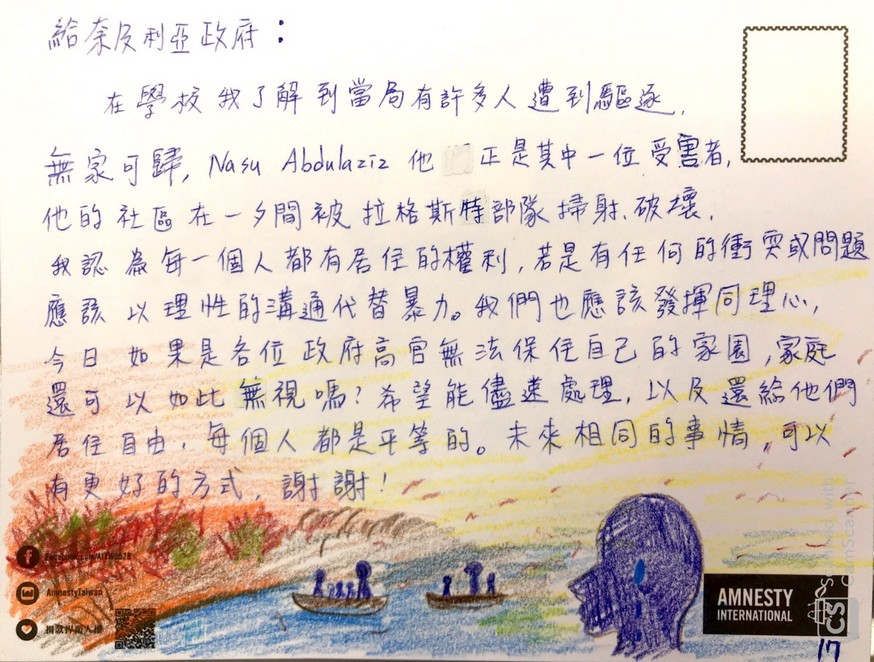 給奈及利亞政府：
在學校我了解到當局有許多人遭到驅逐,
無家可歸, Nasu Abdulaziz 他 正是其中一位受害者,
他的社區在一夕間被拉格斯特部隊掃射、破壞.
我認為每一個人都有居住的權利, 若是有任何的衝突或問題
應該以理性的溝通代替暴力。我們也應該發揮同理心,
今日如果是各位政府高官無法保住自己的家園, 家庭
還可以如此無視嗎? 希望能儘速處理, 以及還給他們
居住自由, 每個人都是平等的。未來相同的事情, 可以
有更好的方式, 謝謝!
AmnestyTaiwan
AMNESTY
INTERNATIONAL
CS CamScanner
17